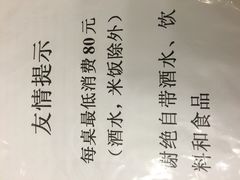 友情提示
每桌最低消费 80 元
（酒水，米饭除外）
谢绝自带酒水、饮
料和食品